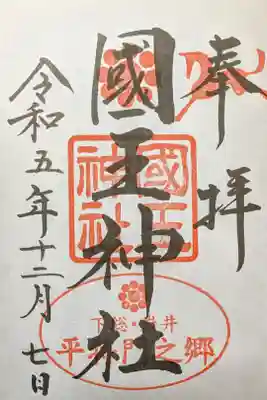 奉拝
國王神社
國王
神社
下総・岩井
平将門之郷
令和五年十二月七日